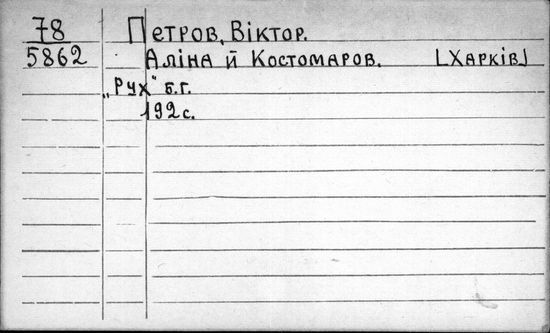 78 Петров, Віктор.
5862 Аліна й Костомаров. [Харків]
„Рух" б.г.
192 с.